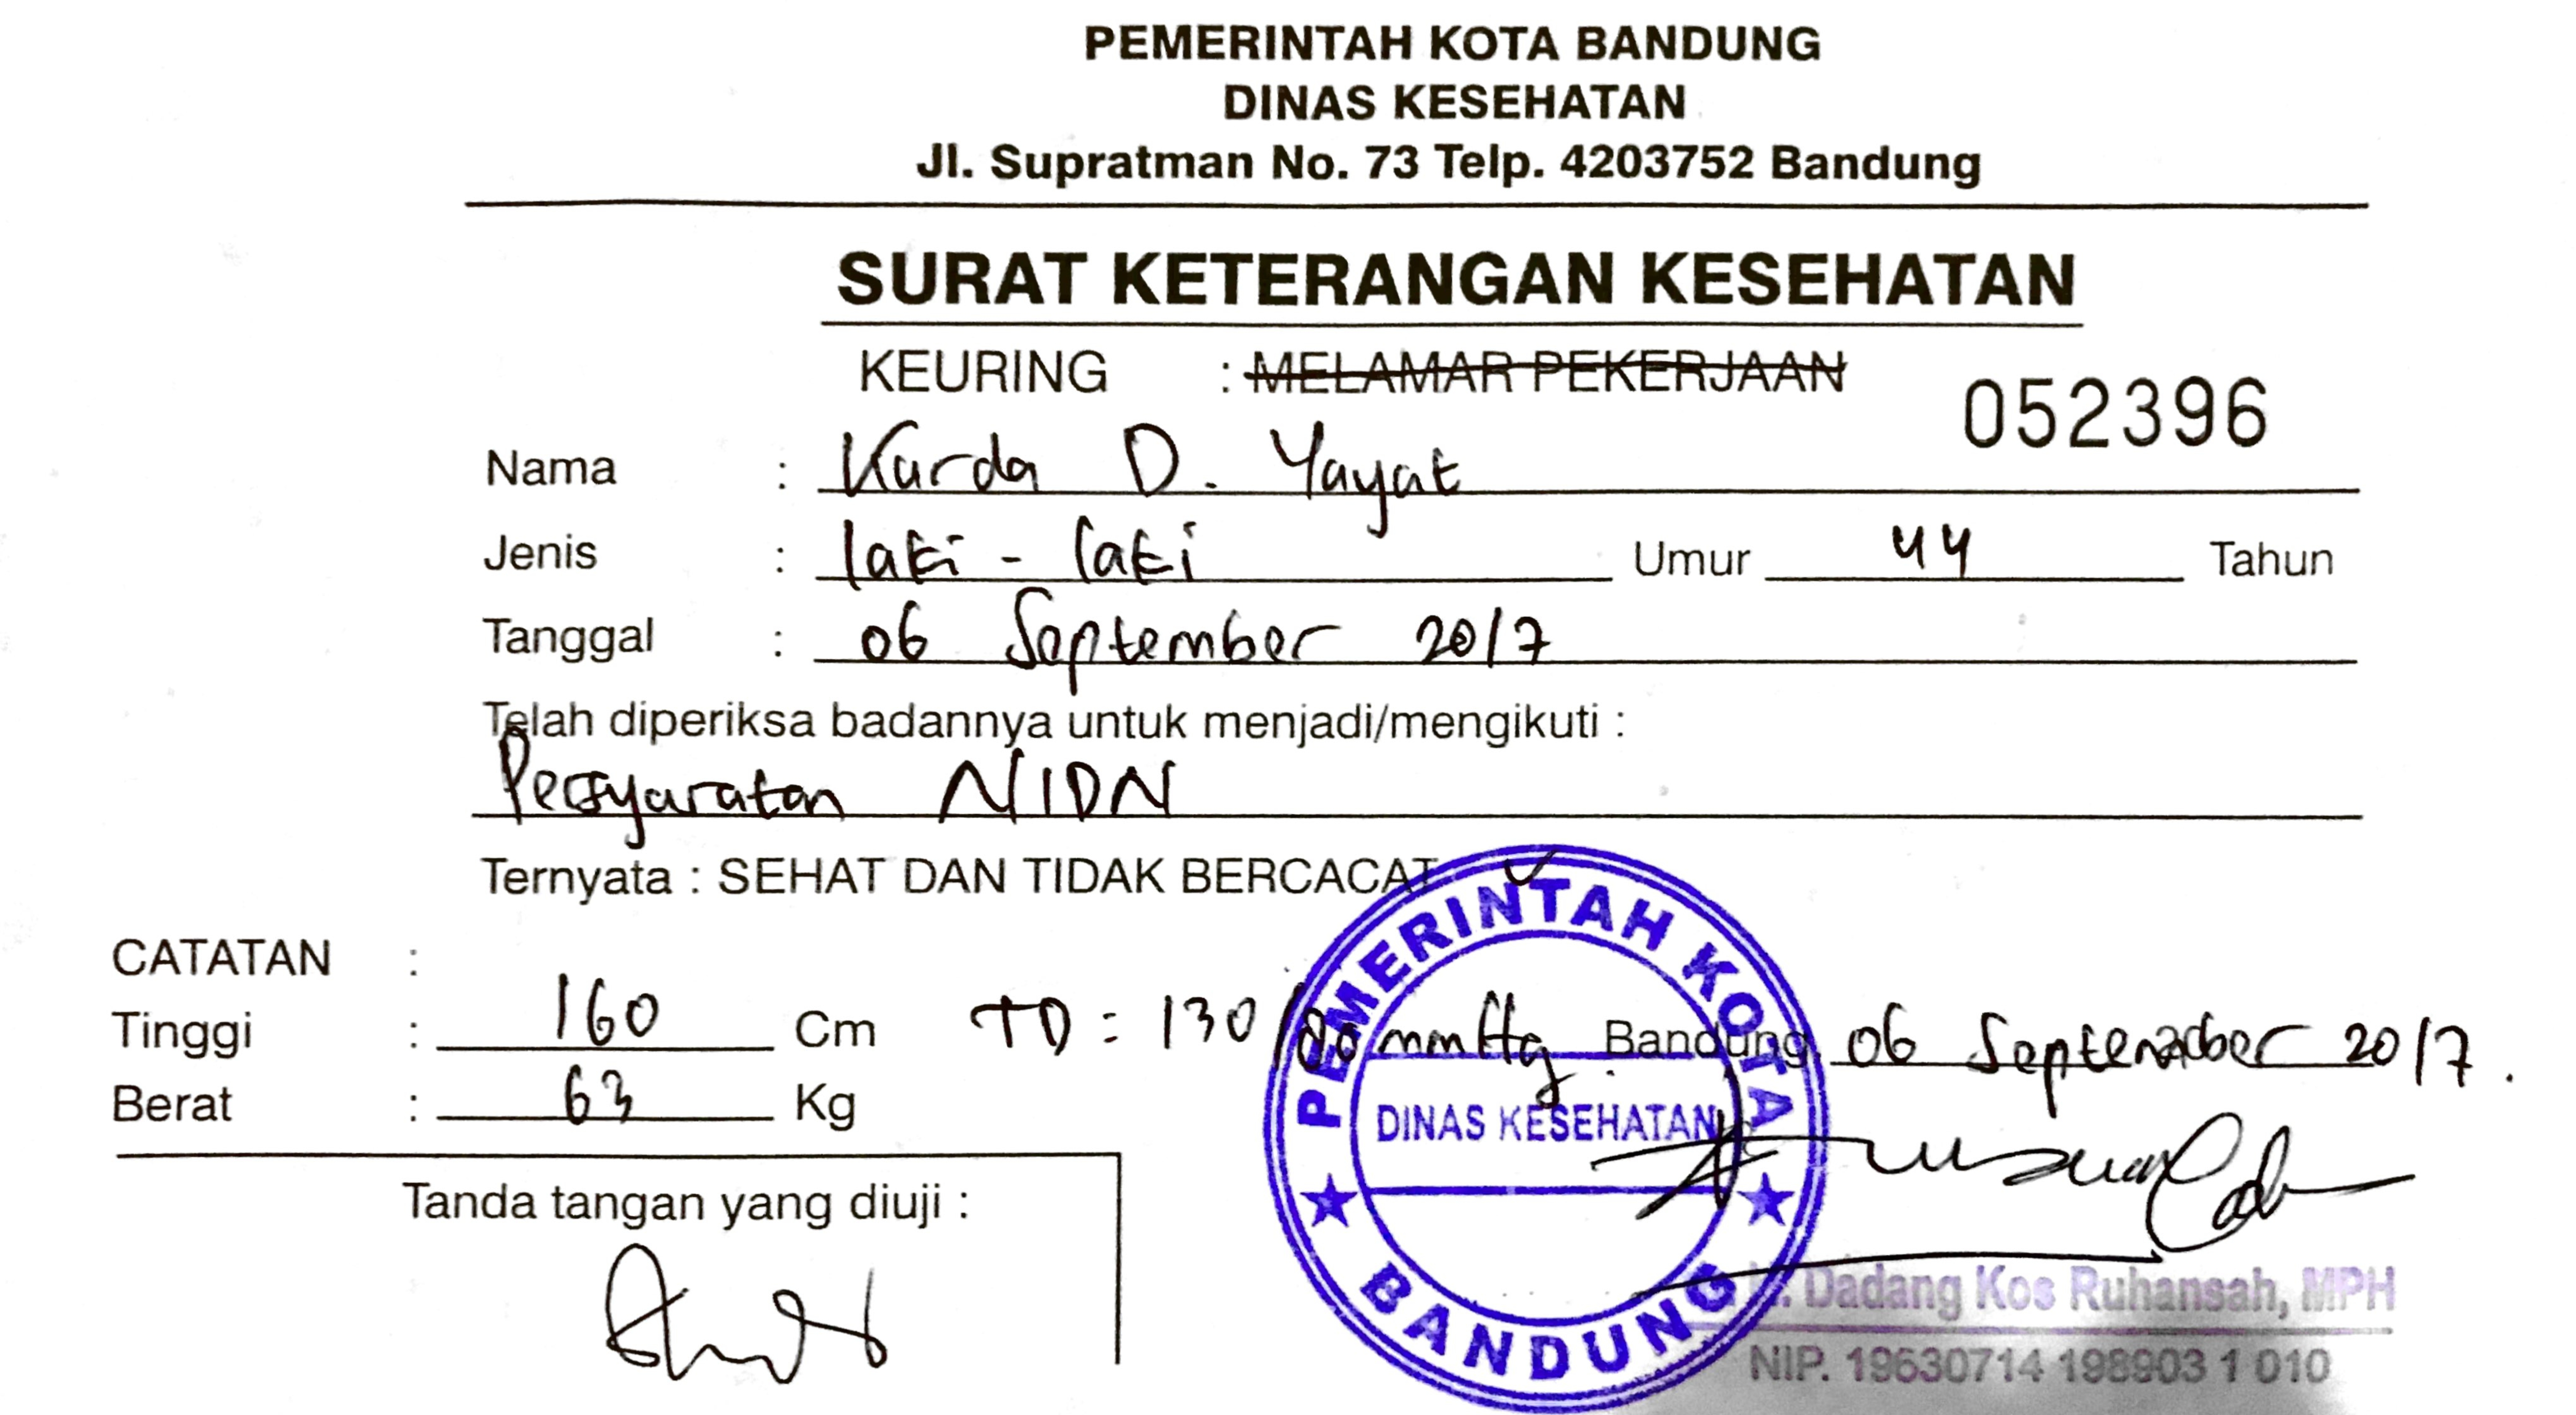 PEMERINTAH KOTA BANDUNG
DINAS KESEHATAN
Jl. Supratman No. 73 Telp. 4203752 Bandung
SURAT KETERANGAN KESEHATAN
KEURING : MELAMAR PEKERJAAN
052396
Nama : Kurda D. Yayat
Jenis : laki - laki Umur 44 Tahun
Tanggal : 06 September 2017
Telah diperiksa badannya untuk menjadi/mengikuti :
Persyaratan NIDN
Ternyata : SEHAT DAN TIDAK BERCACAT
CATATAN :
Tinggi : 160 Cm TD : 130/80 mmHg Bandung, 06 September 2017.
Berat : 63 Kg
PEMERINTAH KOTA
DINAS KESEHATAN
BANDUNG
Tanda tangan yang diuji :
Dadang Kos Ruhansah, MPH
NIP. 19630714 198903 1 010